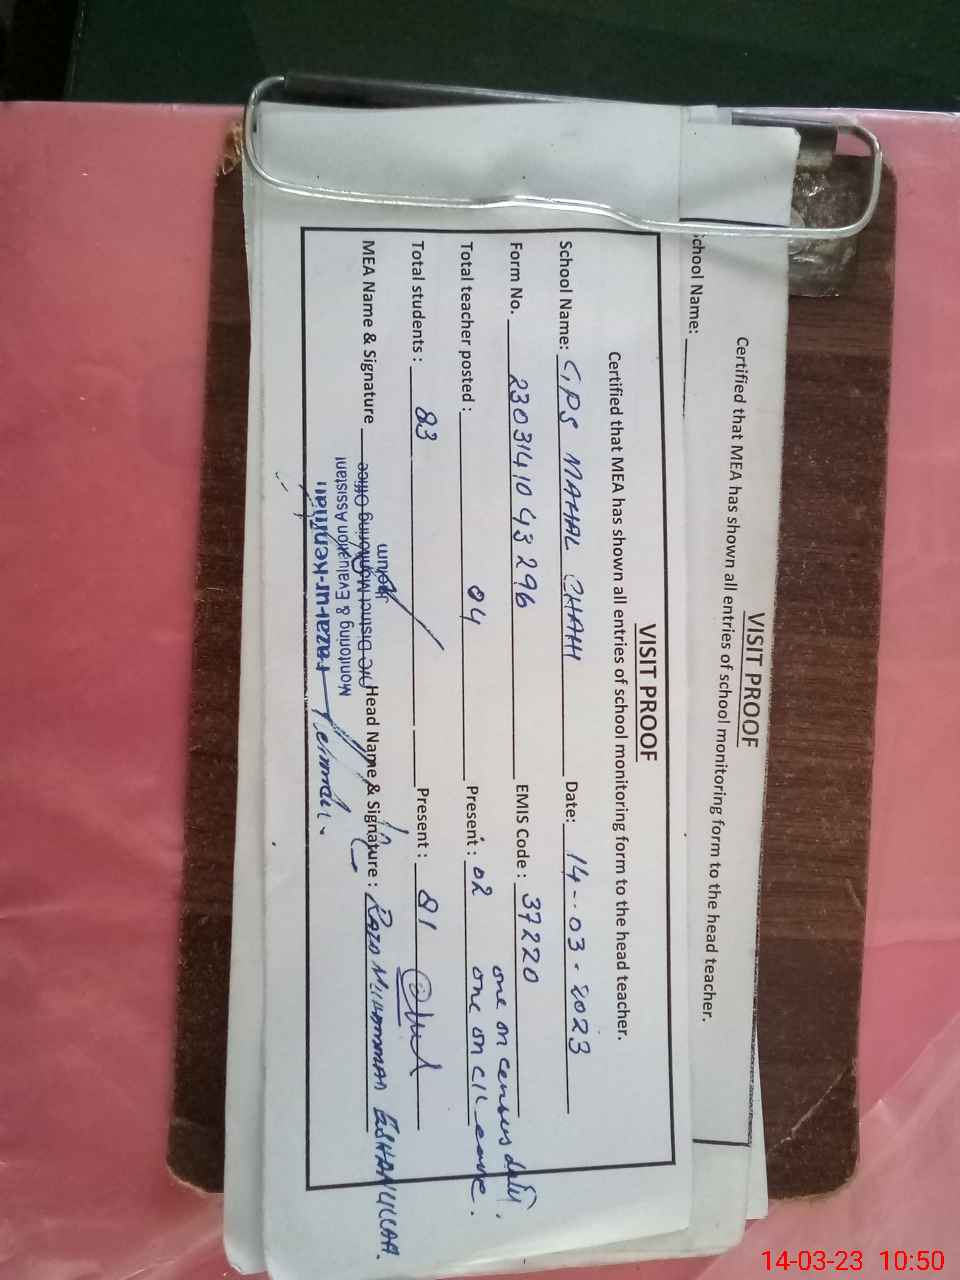 VISIT PROOF
Certified that MEA has shown all entries of school monitoring form to the head teacher.
School Name:
VISIT PROOF
Certified that MEA has shown all entries of school monitoring form to the head teacher.
School Name: GPS MAHAL CHAHI Date: 14-03-2023
Form No. 23031410 43296 EMIS Code: 37220
one on census duty.
Total teacher posted: 04 Present: 02 one on C/Leave.
Total students: 83 Present: 81
MEA Name & Signature Head Name & Signature: EHSANULLAH
O/o District Monitoring Office
Monitoring & Evaluation Assistant
14-03-23 10:50